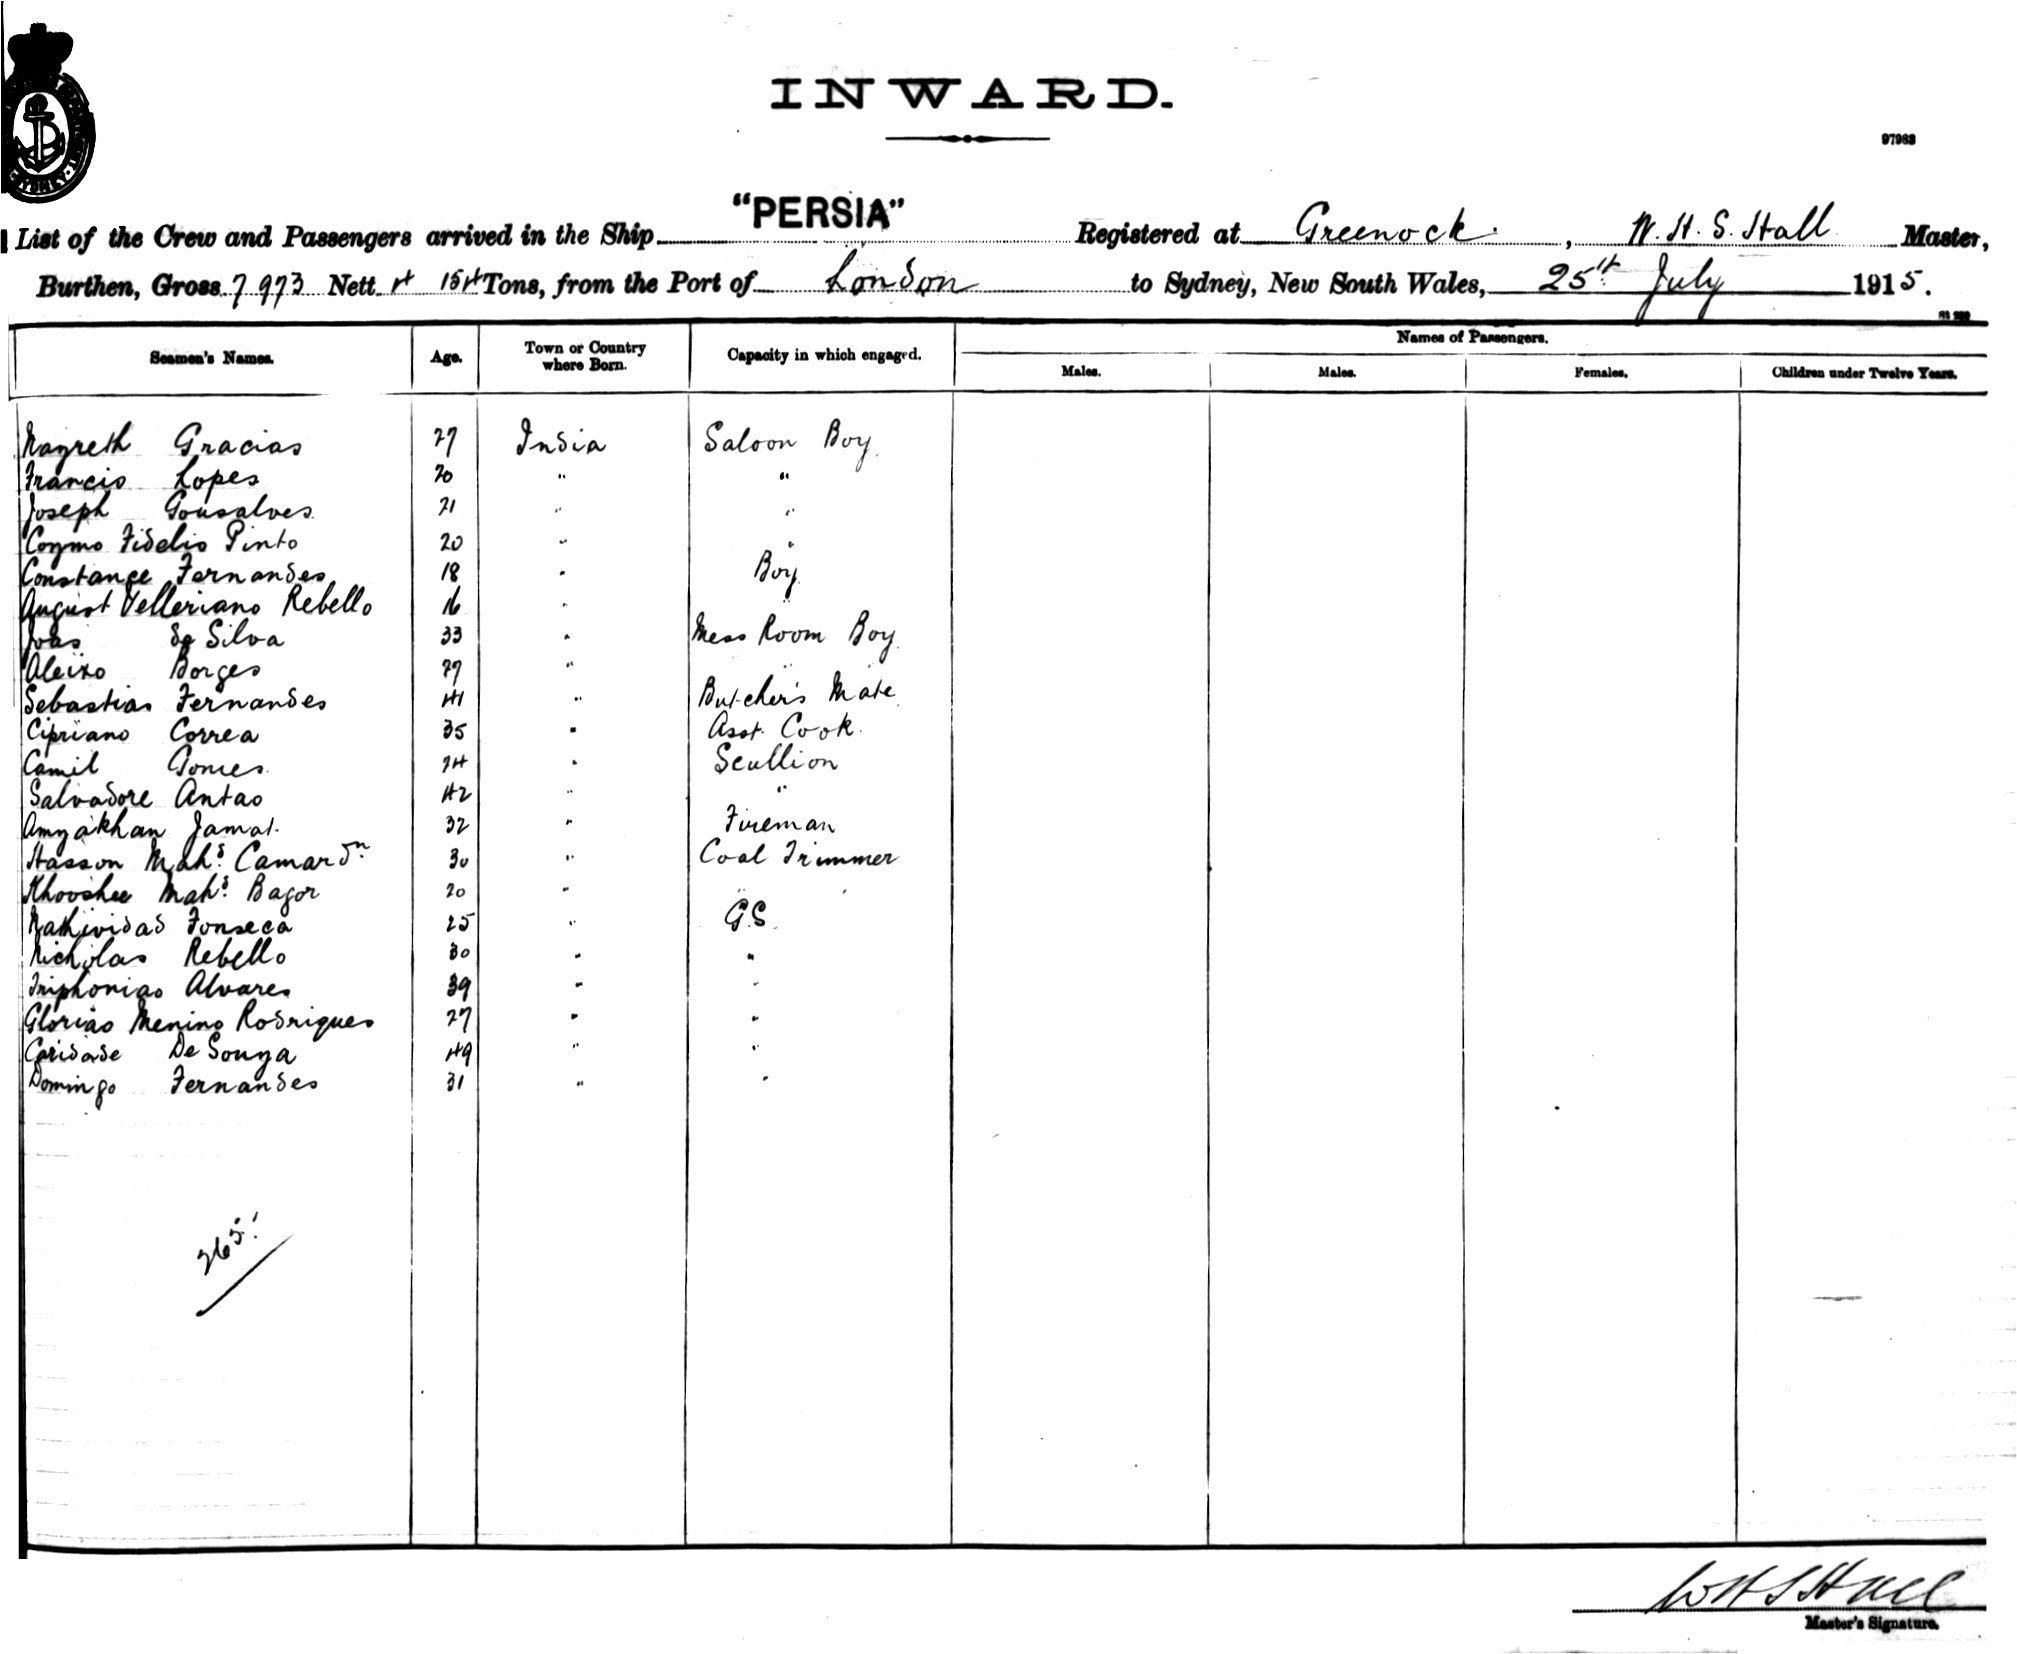 INWARD.
97983
SYDNEY
List of the Crew and Passengers arrived in the Ship "PERSIA" Registered at Greenock, W. H. S. Hall Master,
Burthen, Gross 7973 Nett 4154 Tons, from the Port of London to Sydney, New South Wales, 25th July 1915.
Names of Passengers.
Seamen's Names. Age. Town or Country where Born. Capacity in which engaged. Males. Males. Females. Children under Twelve Years.
Nazreth Gracias 27 India Saloon Boy
Francis Lopes 20 " "
Joseph Gonsalves 21 " "
Cozmo Fidelis Pinto 20 " "
Constange Fernandes 18 " Boy
August Velleriano Rebello 16 " "
Joas de Silva 33 " Mess Room Boy
Aleixo Borges 27 " "
Sebastias Fernandes 41 " Butcher's Mate
Cipriano Correa 35 " Asst. Cook
Camil Gomes 24 " Scullion
Salvadore Antao 42 " "
Amyakhan Jamal 32 " Fireman
Hasson Mahd. Camardn 30 " Coal Trimmer
Khooshee Mahd. Bagor 20 " "
Nathividad Fonseca 25 " G.S.
Nicholas Rebello 30 " "
Triphonias Alvares 39 " "
Glorias Menino Rodrigues 27 " "
Caridade De Souza 49 " "
Domingo Fernandes 31 " "
265
W H S Hall
Master's Signature.